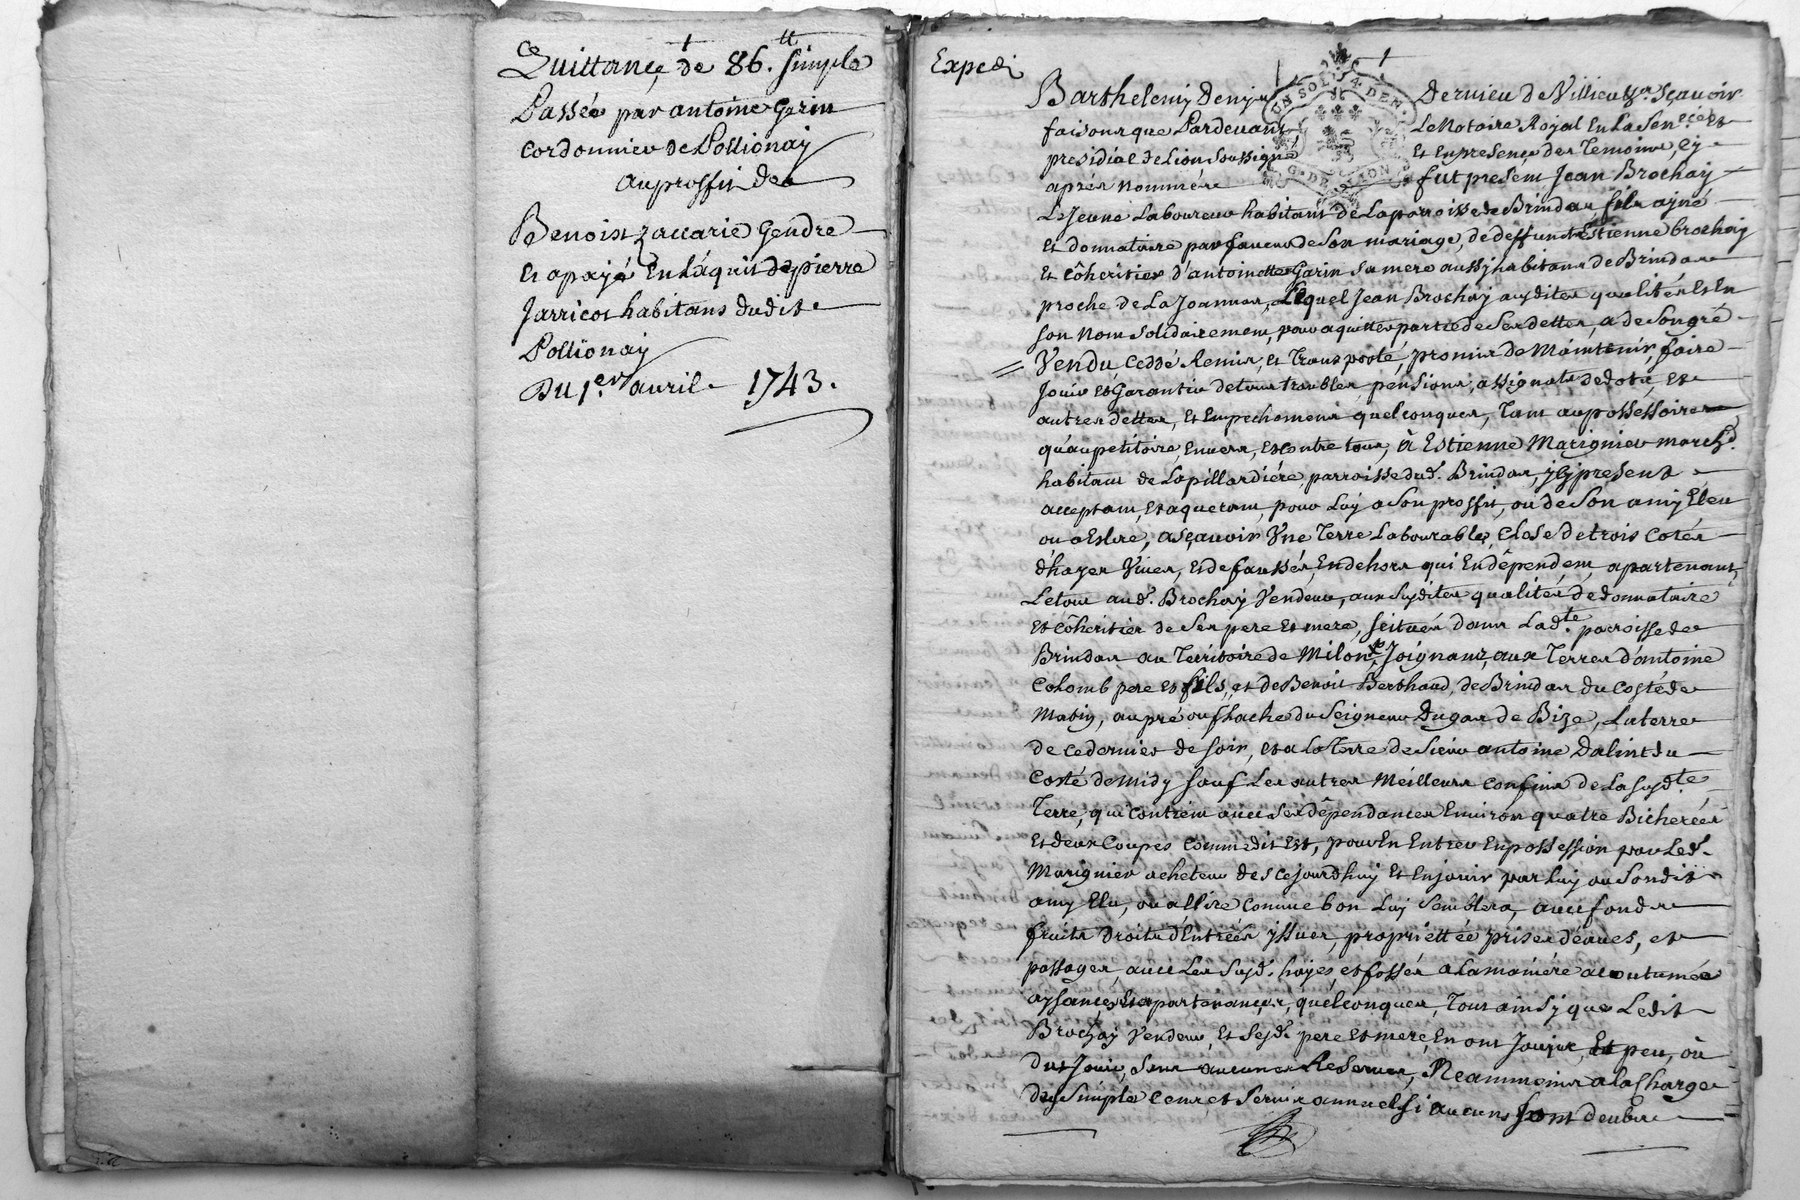 Quittance de 86.tt simple
Passée par antoine Gerin
cordonnier de Pollionay
au proffit de
Benoist Zaccarie Gendre
et a payé En L'aquit de pierre
Jarricot habitans dudit
Pollionay
Du 1.er avril 1743.
Expedi
UN SOL. 4. DEN.
G. DE LION
Barthelemy Denis Dervieu de Villieu Sçavoir
faisons que Pardevant Le Notaire Royal En La Sen.ccée Et
presidial de Lion Soussigné Et En presence des Temoins, Cy
aprés nommés fut present Jean Brochay
Le Jeune Laboureur habitant de La parroisse de Brindas fils ayné
et donnataire par faveur de Son mariage, de deffunt Estienne Brochay
et Côheritier d'antoinette Garin Sa mere aussy habitans de Brindas
proche de La Joannas, Lequel Jean Brochay ausdites qualités Et En
son Nom Solidairement, pour aquitter partie de Ses dettes, a de Son gré
Vendu Ceddé Remis, et Transporté, promis de Maintenir, faire
Jouir et Garantir de tous troubles, pensions, assignats de dote, et
autres dettes, et Empechemens quelconques, Tant au possessoire
qu'au petitoire, Envers, et contre tous, à Estienne Marignier march.d
habitant de Lapillardiére, parroisse dud. Brindas, jcy present
acceptant, et aquerant, pour Luy a Son proffit, ou de Son amy Eleu
ou a Eslire, asçavoir Une Terre Labourable, Close de trois Cotés
d'hayes Vives, et de fossés, En dehors qui En dépendent, apartenant
Le tout aud. Brochay Vendeur, aux Susdites qualités de donnataire
et Côheritier de Ses pere et mere, scituée dans Lad.te parroisse de
Brindas au Territoire de Milon, Joignant, aux Terres d'antoine
Colomb pere et fils, et de Benoit Berthaud, de Brindas du Costé de
Matin, au pré ou flache du Seigneur Dugas de Bize, La terre
de ce dernier de Soir, et a La Terre de Sieur antoine Dalin du
Costé de midy sauf Les autres Meilleurs Confins de La Susd.te
Terre, qui Contient avec Ses dépendances Environ quatre Bicherées
et deux Coupes Comme dit Est, pour En Entrer En possession par Led.
Marignier acheteur des ce Jourd'huy et En jouir par Luy ou Sondit
amy Elu, ou a Elire comme bon Luy Semblera, avec fonds
fruits Droits d'Entrées yssues, propriettée prises d'eaues, et
passages, avec Les Susd. hayes et fossés a La maniére acoutumée
aysances, Et apartenances, quelconques, Tout ainsy que Ledit
Brochay Vendeur, et Sesd. pere et mere, En ont Jouyr, Et peu, ou
deu Jouir, Sans aucunes Reserves, Neammoins a La Charge
du Simple Cens, et Servis annuel si aucuns Sont deubs